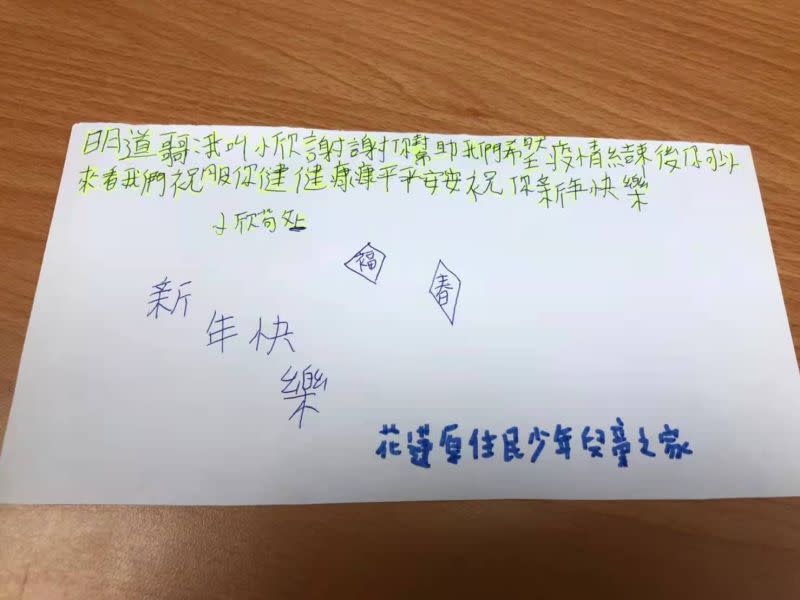 明道哥:我叫小欣謝謝你幫助我們希望疫情結束後你可以
來看我們祝服你健健康康平平安安祝你新年快樂
小欣
福
春
新
年快
樂
花蓮原住民少年兒童之家